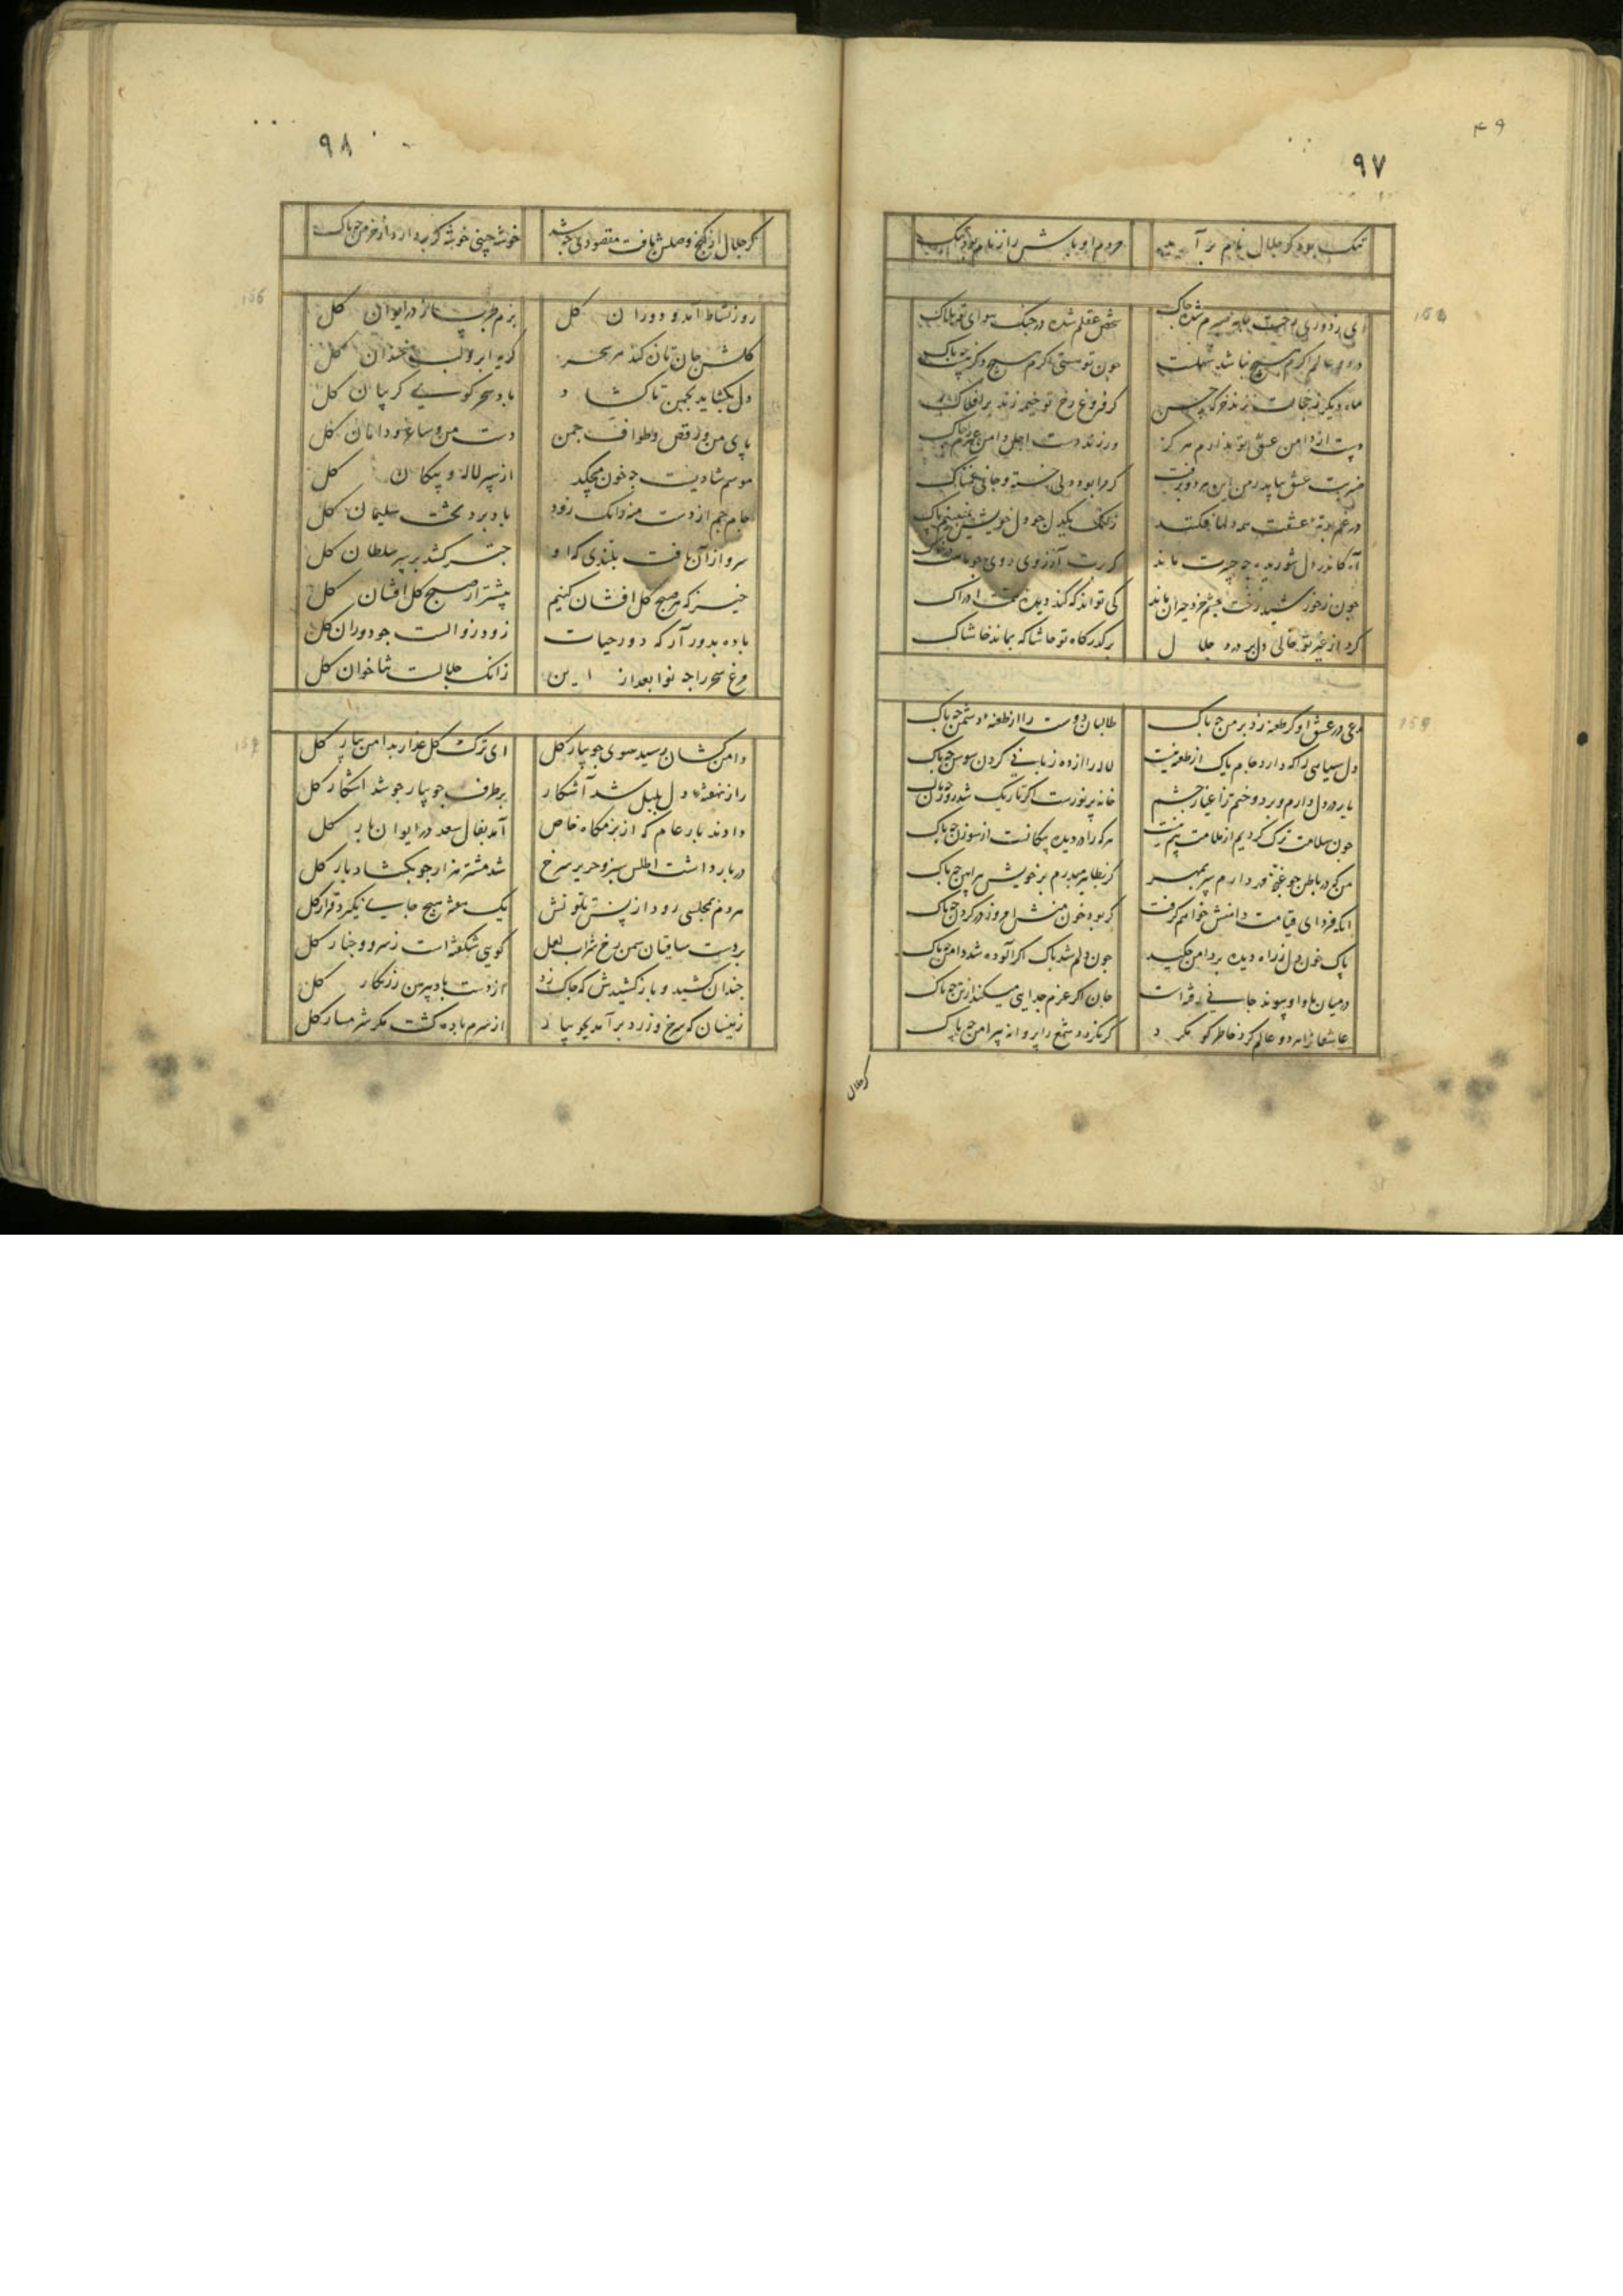 ۴۹
۹۷
ننگ بود کر جلال نام بر آ
مردم اوباش را ز نام بود ننگ
ای ز دوری جیب جامه صبرم شده چاک
شخص عقلم شده در جنگ سوای تو هلاک
در دو عالم اکرم هیچ نباشد سهلست
جون تو هستی اکرم هیچ دکر نیست چه باک
ماه دیکر نه خجالت زند خرکه حسن
کر فروغ رخ تو خیمه زند بر افلاک
دست از دامن عشق تو ندارم هرکز
ور زند دست اجل دامن عمرم چاک
که مرا بود دلی خسته و جانی غمناک
در غم رتبه عشقت همه دلها فکند
آه کاندر دل شوریده چه حسرت ماند
جون ز خورشید رخت چشم خرد حیران ماند
کی تواند که کند دیده ادراک
کرد از غیر تو خالی دل پر درد جلال
بر گذرکاه تو حاشا که بماند خاشاک
مدعی در عشق او کر طعنه زد بر من چه باک
طالبان دوست را از طعنه دشمن چه باک
لاله را از ده زبانی کردن سوسن چه باک
یار در دل دارم و بر دوختم ز اغیار چشم
خانه پر نورست اکر تاریک شد روزن چه باک
جون سلامت ترک کردیم از ملامت بیم نیست
هر که را در دیده پیکانست از سوزن چه باک
من که در باطن جو غنچه
کر بظاهر میدرم بر خویش پیراهن چه باک
آنکه فردای قیامت دامنش خواهم کرفت
کر بود خون منش امروز در کردن چه باک
پاک خون دل ز راه دیده بر دامن چکید
جون دلم شد پاک اکر آلوده شد دامن چه باک
در میان ما و او پیوند جانی
جان اکر عزم جدایی میکند از تن چه باک
عاشقانرا هر دو عالم کرد خاطر کو مکرد
کر نکردد شمع را پروانه پیرامن چه باک
کر جلال
۹۸
کر جلال از کنج وصلش یافت مقصودی چه شد
خوشه چینی خوشه کر بردارد از خرمن چه باک
روز نشاط آمد و دوران کل
بزم طرب ساز در ایوان کل
کلشن جان تازه کند هر سحر
کریه ابر و لب خندان کل
دل بکشاید بچمن تا کشاد
باد سحر کوی کریبان کل
پای من و رقص و طواف چمن
دست من و ساغر و دامان کل
موسم شادیست چه خون میچکد
از سپر لاله و پیکان کل
جام جم از دست منه زانک زود
باد برد تخت سلیمان کل
سرو از آن یافت بلندی که او
چتر کشد بر سر سلطان کل
خیز که هر صبح کل افشان کنیم
پیشتر از صبح کل افشان کل
باده بدور آر که دور حیات
زود زوالست جو دوران کل
مرغ سحر را چه نوا بعد از این
زانک جلالست ثناخوان کل
دامن کشان رسید سوی جویبار کل
ای ترک کل عذار بدامن بیار کل
راز نهفته دل بلبل شد آشکار
بر طرف جویبار جو شد آشکار کل
دادند بار عام که از بزمکاه خاص
آمد بفال سعد در ایوان بار کل
در بار داشت اطلس سبز و حریر سرخ
شد مشتری هزار جو بکشاد بار کل
هر دم بمجلسی رود از بس تلونش
یک هفته هیچ جای نکیرد قرار کل
بر دست ساقیان سمن رخ شراب لعل
کویی شکفته است ز سرو و چنار کل
چندان کشید و باز کشیدش که چاک زد
از دست باد پیرهن زرنکار کل
زینسان که سرخ و زرد برآمد بجویبار
از شرم باده کشت مکر شرمسار کل